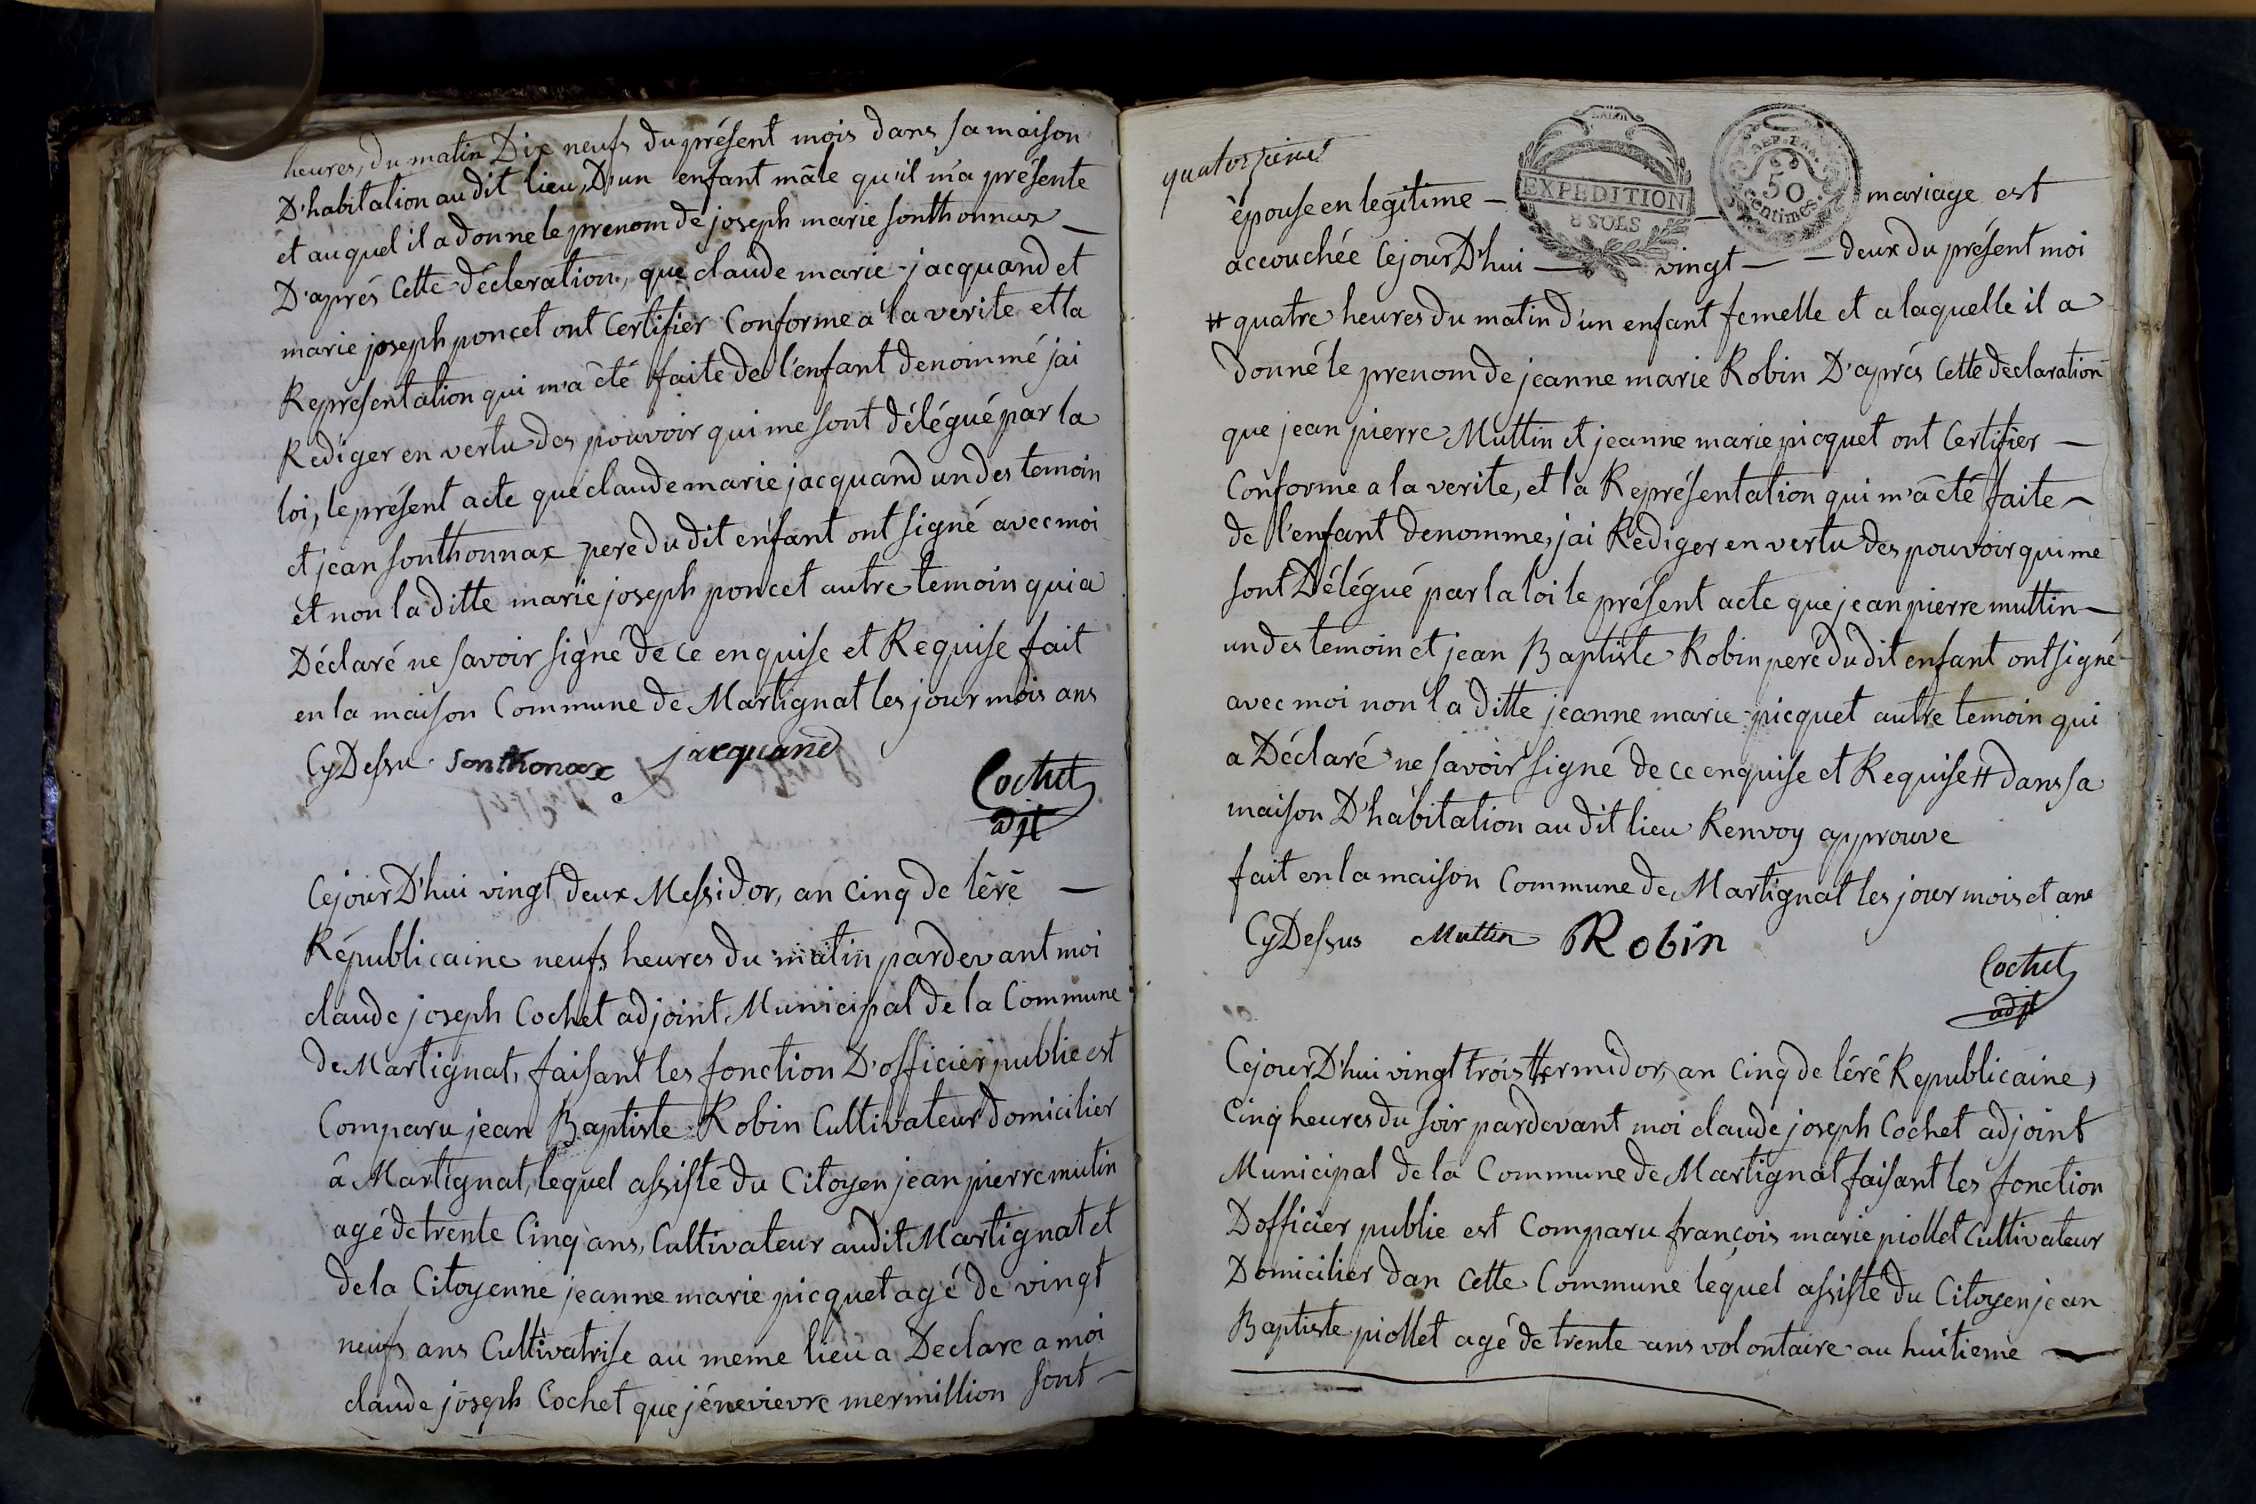 heures, du matin Dix neufs du présent mois dans sa maison
D'habitation au dit lieu, D'un enfant mâle qu'il m'a présente
et auquel il a donne le prenom de joseph marie sonthonnax
D'aprés Cette décleration, que claude marie jacquand et
marie joseph poncet ont Certifier Conforme a la verite et la
Représentation qui m'a été faite de l'enfant denommé jai
Rediger en vertu des pouvoir qui me sont délégué par la
loi, le présent acte que claude marie jacquand un des temoin
et jean sonthonnax pere du dit enfant ont signé avec moi
et non la ditte marie joseph poncet autre temoin qui a
Déclaré ne savoir signé de ce enquise et Requise fait
en la maison Commune de Martignat les jour mois ans
Cy Dessu Sonthonax jacquand
Cochet
adjt
Cejour D'hui vingt deux Messidor, an Cinq de léré
Républicaine neufs heures du matin pardevant moi
claude joseph Cochet adjoint Municipal de la Commune
de Martignat, faisant les fonction D'officier public est
Comparu jean Baptiste Robin Cultivateur domicilier
â Martignat, lequel assisté du Citoyen jean pierre mutin
agé de trente Cinq ans, Cultivateur audit Martignat et
de la Citoyenne jeanne marie picquet agé de vingt
neufs ans Cultivatrise au meme lieu a Declare a moi
claude joseph Cochet que jénevievre mermillion sont
quatorzieme
EXPEDITION
8 SOLS
REP. FRA.
50
centimes
épouse en legitime mariage est
accouchée Cejour D'hui vingt deux du présent moi
# quatre heures du matin d'un enfant femelle et a laquelle il a
donné le prenom de jeanne marie Robin D'aprés Cette déclaration
que jean pierre Muttin et jeanne marie picquet ont Certifier
Conforme a la verite, et la Représentation qui m'a été faite
de l'enfant denomme, jai Rédiger en vertu des pouvoir qui me
sont Délégué par la loi le présent acte que jean pierre muttin
un des temoin et jean Baptiste Robin pere du dit enfant ont signé
avec moi non la ditte jeanne marie picquet autre temoin qui
a Déclaré ne savoir signé de ce enquise et Requise # dans sa
maison D'habitation au dit lieu Renvoy approuve
fait en la maison Commune de Martignat les jour mois et ans
Cy Dessus Muttin Robin
Cochet
adjt
Cejour D'hui vingt trois thermidor, an Cinq de léré Republicaine,
Cinq heures du soir pardevant moi claude joseph Cochet adjoint
Municipal de la Commune de Martignat faisant les fonction
D'officier public est Comparu françois marie piollet Cultivateur
Domicilier dan Cette Commune lequel assisté du Citoyen jean
Baptiste piollet agé de trente ans volontaire au huitieme